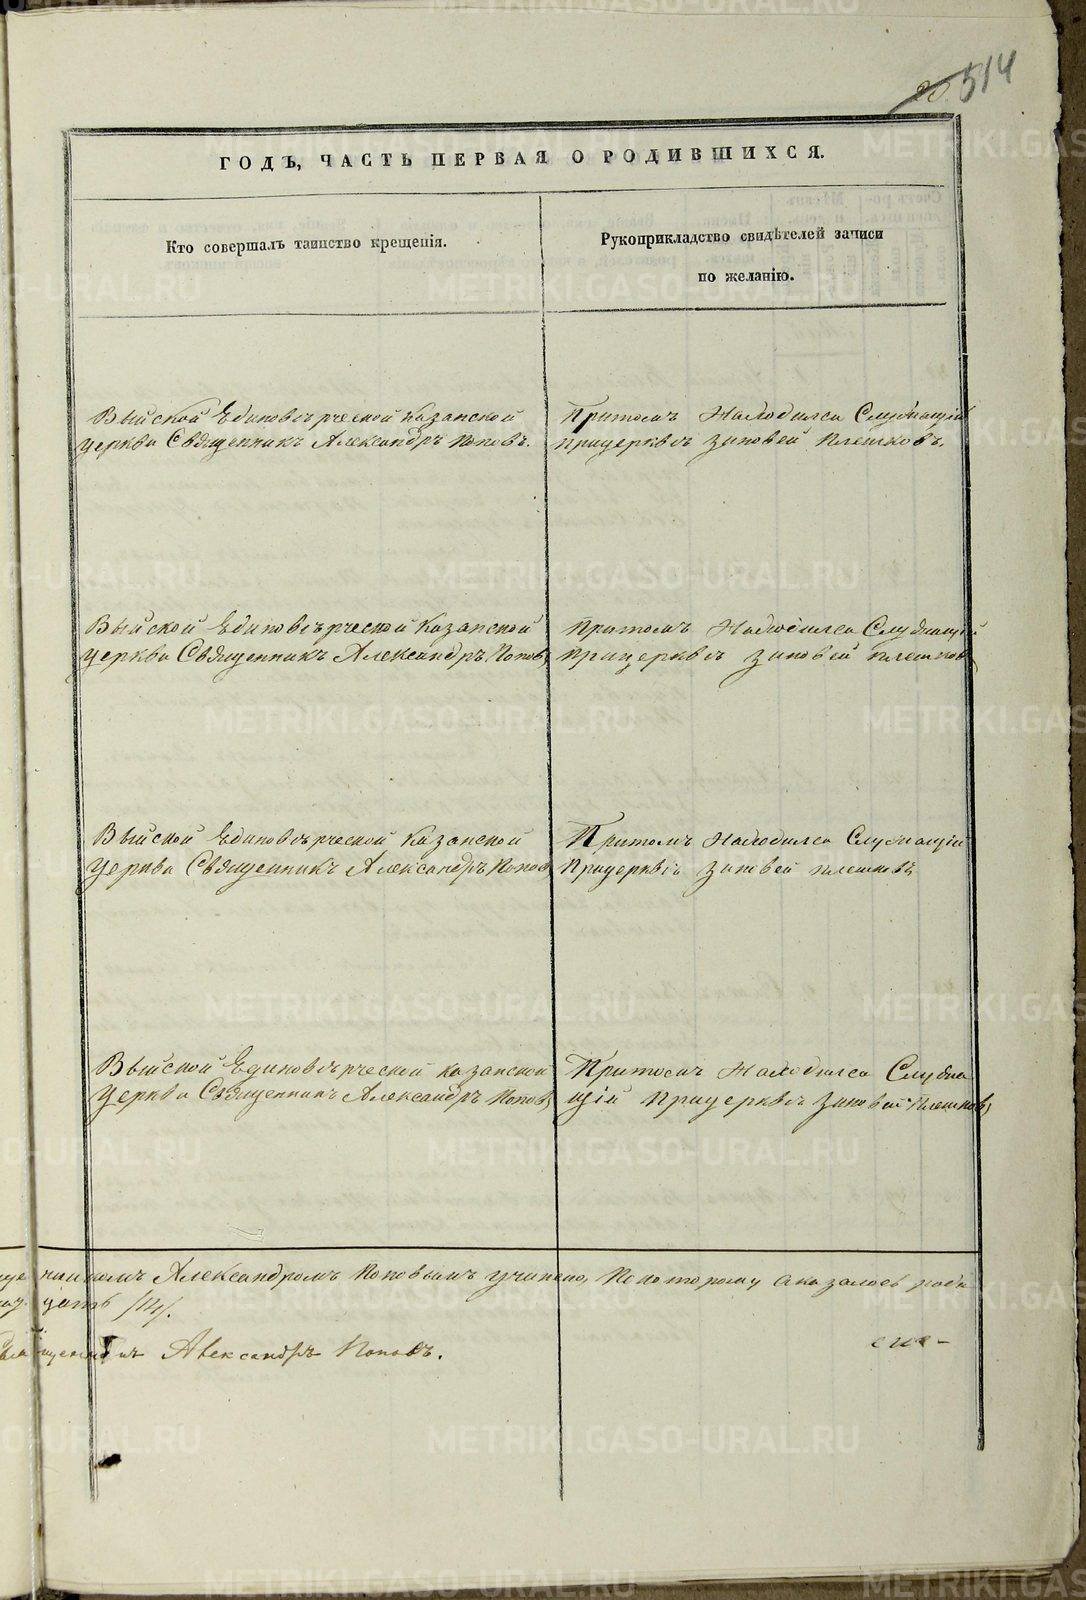 514
ГОДЪ, ЧАСТЬ ПЕРВАЯ О РОДИВШИХСЯ.
Кто совершалъ таинство крещенія.
Рукоприкладство свидѣтелей записи
по желанію.
Выйской Единовѣрческой Казанской
Церкви Священникъ Александръ Поповъ.
Притомъ Находился Служащій
Прицерквѣ Зиновей Плешковъ.
Выйской Единовѣрческой Казанской
Церкви Священникъ Александръ Поповъ
Притомъ Находился Служащій
Прицерквѣ Зиновей Плешковъ
Выйской Единовѣрческой Казанской
Церкви Священникъ Александръ Поповъ
Притомъ Находился Служащій
Прицерквѣ Зиновей Плешковъ
Выйской Единовѣрческой Казанской
Церкви Священникъ Александръ Поповъ
Притомъ Находился Служа
щій Прицерквѣ Зиновей Плешковъ
Александромъ Поповымъ учинено, По которому Оказалось
Александръ Поповъ.
METRIKI.GASO-URAL.RU